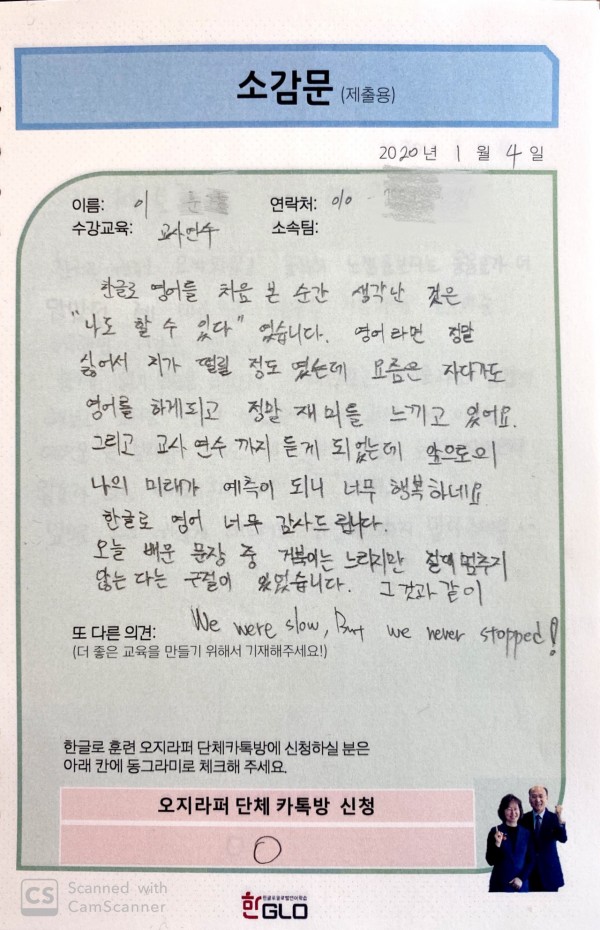 소감문 (제출용)
2020년 1월 4일
이름: 이 연락처: 010
수강교육: 교사연수 소속팀:
한글로 영어를 처음 본 순간 생각난 것은
"나도 할 수 있다" 였습니다. 영어라면 정말
싫어서 지가 떨릴 정도 였는데 요즘은 자다가도
영어를 하게되고 정말 재미를 느끼고 있어요.
그리고 교사 연수까지 듣게 되었는데 앞으로의
나의 미래가 예측이 되니 너무 행복하네요
한글로 영어 너무 감사드립니다.
오늘 배운 문장 중 거북이는 느리지만 절대 멈추지
않는 다는 구절이 있었습니다. 그것과 같이
We were slow, But we never stopped!
또 다른 의견:
(더 좋은 교육을 만들기 위해서 기재해주세요!)
한글로 훈련 오지라퍼 단체카톡방에 신청하실 분은
아래 칸에 동그라미로 체크해 주세요.
오지라퍼 단체 카톡방 신청
CS Scanned with
CamScanner
한GLO